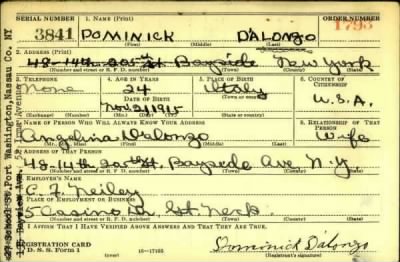 SERIAL NUMBER 1. NAME (Print) ORDER NUMBER
3841 DOMINICK D'ALONZO 1793
(First) (Middle) (Last)
2. ADDRESS (Print)
48-14th 205th St. Bayside New York
(Number and street or R. F. D. number) (Town) (County) (State)
3. TELEPHONE 4. AGE IN YEARS 5. PLACE OF BIRTH 6. COUNTRY OF CITIZENSHIP
None 24 Italy
DATE OF BIRTH
Nov 21 1915 U.S.A.
(Exchange) (Number) (Mo.) (Day) (Yr.) (Town or county) (State or country)
7. NAME OF PERSON WHO WILL ALWAYS KNOW YOUR ADDRESS 8. RELATIONSHIP OF THAT PERSON
Angelina D'alonzo Wife
(Mr., Mrs., Miss) (First) (Middle) (Last)
9. ADDRESS OF THAT PERSON
48-14th 205th St. Bayside Ave N.Y
(Number and street or R. F. D. number) (Town) (County) (State)
10. EMPLOYER'S NAME
C. F. Neiley
11. PLACE OF EMPLOYMENT OR BUSINESS
5 Casino Gt. Neck
(Number and street or R. F. D. number) (Town) (County) (State)
I AFFIRM THAT I HAVE VERIFIED ABOVE ANSWERS AND THAT THEY ARE TRUE.
REGISTRATION CARD
D. S. S. Form 1 (over) 16-17105 Dominick D'alonzo
(Registrant's signature)
27 School St. Port Washington, Nassau Co. NY